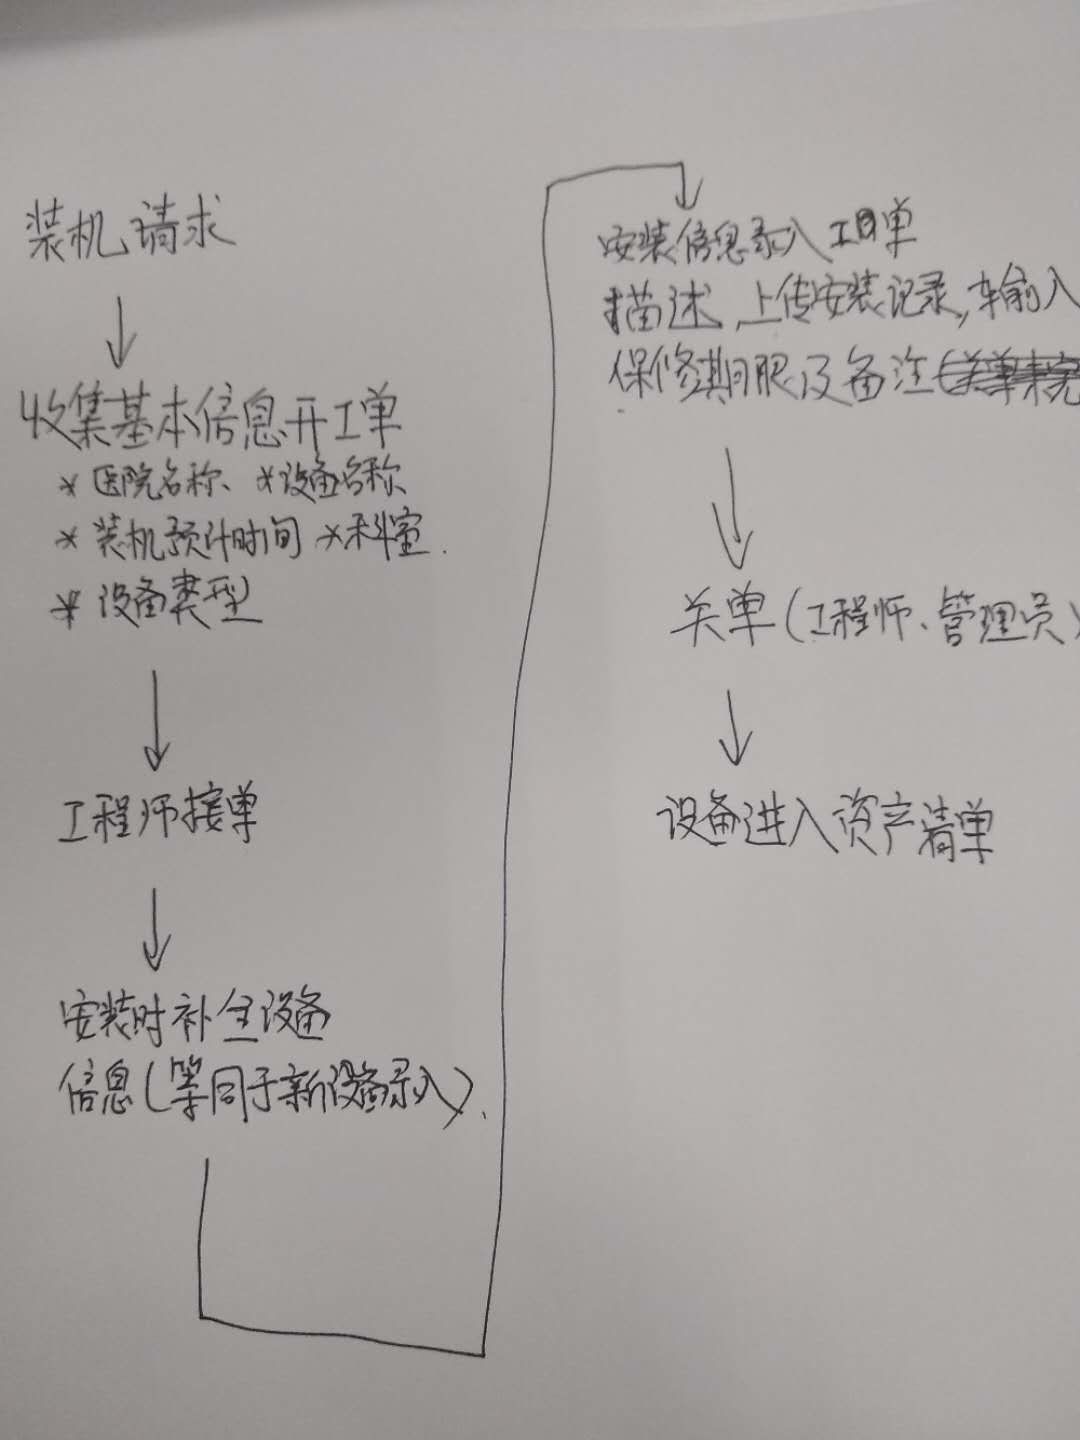 装机请求
收集基本信息开工单
* 医院名称、 * 设备名称
* 装机预计时间 * 科室.
* 设备类型
工程师接单
安装时补全设备
信息(等同于新设备录入).
安装信息录入工单
描述,上传安装记录,输入
保修期限及备注
关单(工程师、管理员)
设备进入资产清单